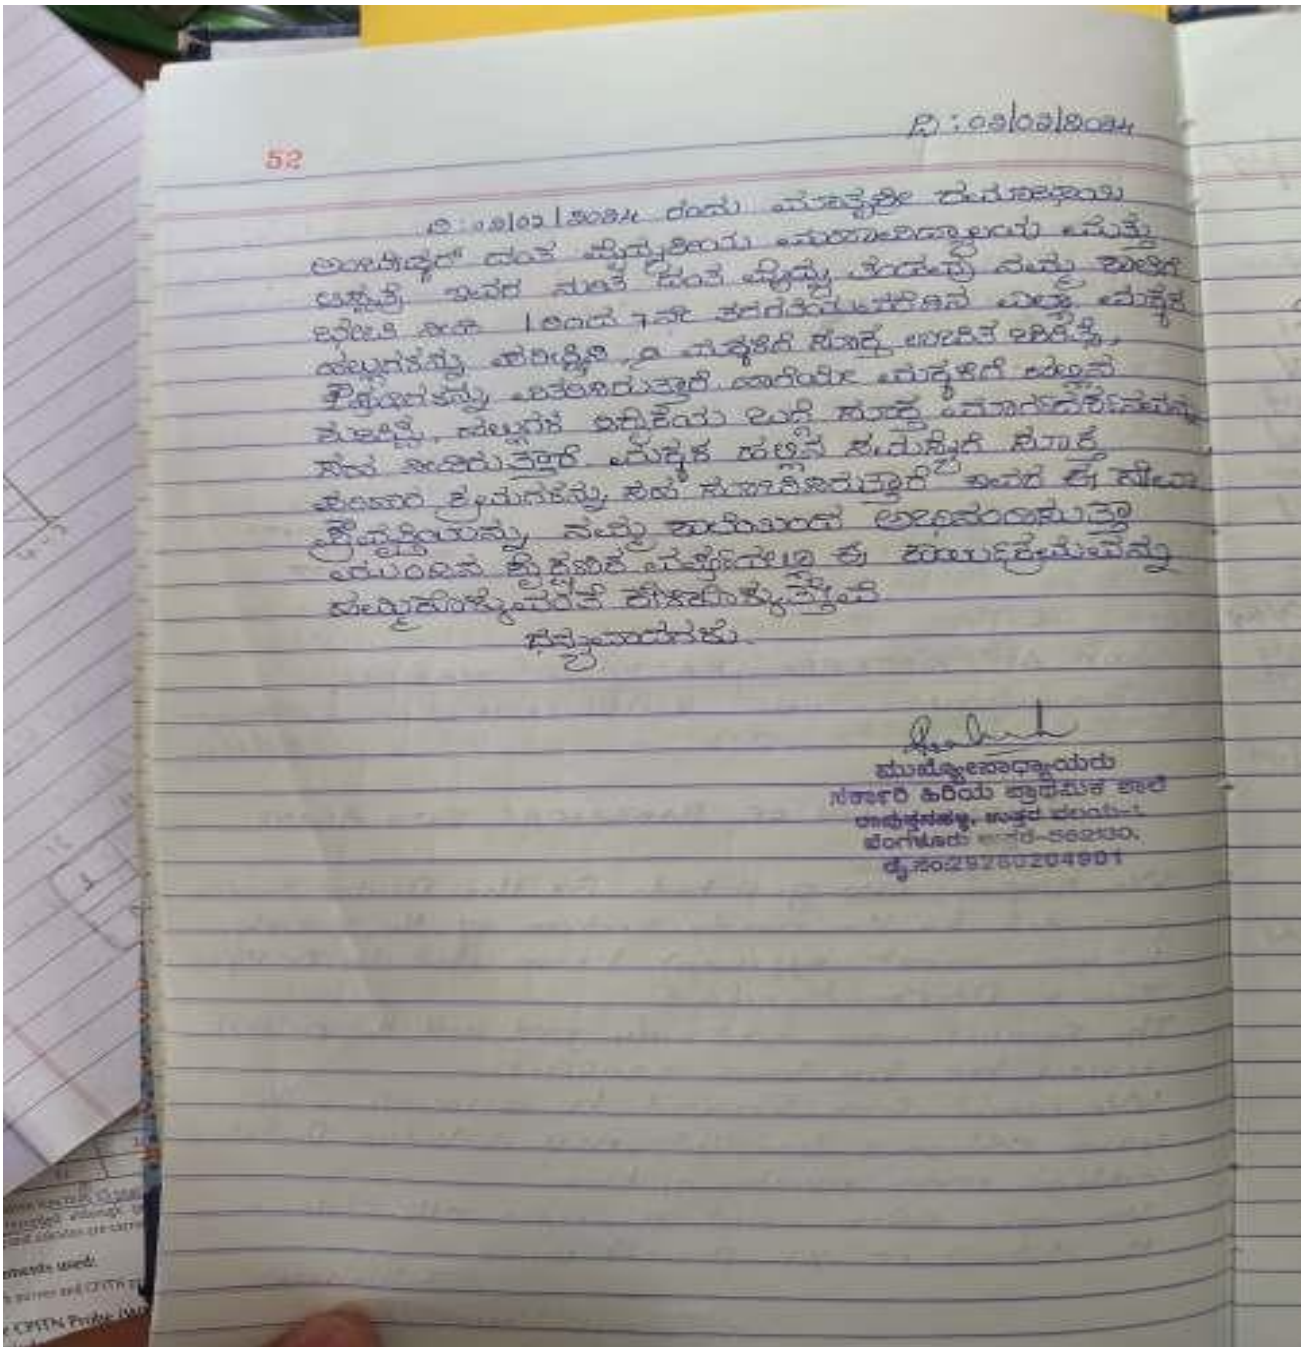 52
ದಿ : 02/02/2024
ದಿ : 02/02/2024 ರಂದು ಮಾತೃಶ್ರೀ ರಮಾಬಾಯಿ
ಅಂಬೇಡ್ಕರ್ ದಂತ ವೈದ್ಯಕೀಯ ಮಹಾವಿದ್ಯಾಲಯ ಮತ್ತು
ಆಸ್ಪತ್ರೆ ಇವರ ನುರಿತ ದಂತ ವೈದ್ಯ ತಂಡವು ನಮ್ಮ ಶಾಲೆಗೆ
ಭೇಟಿ ನೀಡಿ 1 ರಿಂದ 7 ನೇ ತರಗತಿಯವರೆಗಿನ ಎಲ್ಲಾ ಮಕ್ಕಳ
ಹಲ್ಲುಗಳನ್ನು ಪರೀಕ್ಷಿಸಿ, ಮಕ್ಕಳಿಗೆ ಸೂಕ್ತ ಉಚಿತ ಚಿಕಿತ್ಸೆ,
ಔಷಧಿಗಳನ್ನು ವಿತರಿಸಿರುತ್ತಾರೆ ಹಾಗೆಯೇ ಮಕ್ಕಳಿಗೆ ಹಲ್ಲಿನ
ಹಲ್ಲುಗಳ ಬಗ್ಗೆ ಸೂಕ್ತ ಮಾರ್ಗದರ್ಶನವನ್ನು
ಸಹ ನೀಡಿರುತ್ತಾರೆ ಮಕ್ಕಳ ಹಲ್ಲಿನ ಸಮಸ್ಯೆಗೆ ಸೂಕ್ತ
ಪರಿಹಾರ ಕ್ರಮಗಳನ್ನು ಸಹ ಸೂಚಿಸಿರುತ್ತಾರೆ ಇವರ ಈ ಸೇವಾ
ನಮ್ಮ ಶಾಲೆಯಿಂದ ಅಭಿನಂದಿಸುತ್ತಾ
ಮುಂದಿನ ಶೈಕ್ಷಣಿಕ ವರ್ಷದಲ್ಲೂ ಈ ಕಾರ್ಯಕ್ರಮವನ್ನು
ಹಮ್ಮಿಕೊಳ್ಳುವಂತೆ ಕೇಳಿಕೊಳ್ಳುತ್ತೇವೆ
ಧನ್ಯವಾದಗಳು.
ಮುಖ್ಯೋಪಾಧ್ಯಾಯರು
ಸರ್ಕಾರಿ ಹಿರಿಯ ಪ್ರಾಥಮಿಕ ಶಾಲೆ
ಉತ್ತರ ವಲಯ-1,
ಬೆಂಗಳೂರು ಉತ್ತರ-562130.
ಡೈ.ಸಂ:29280204901